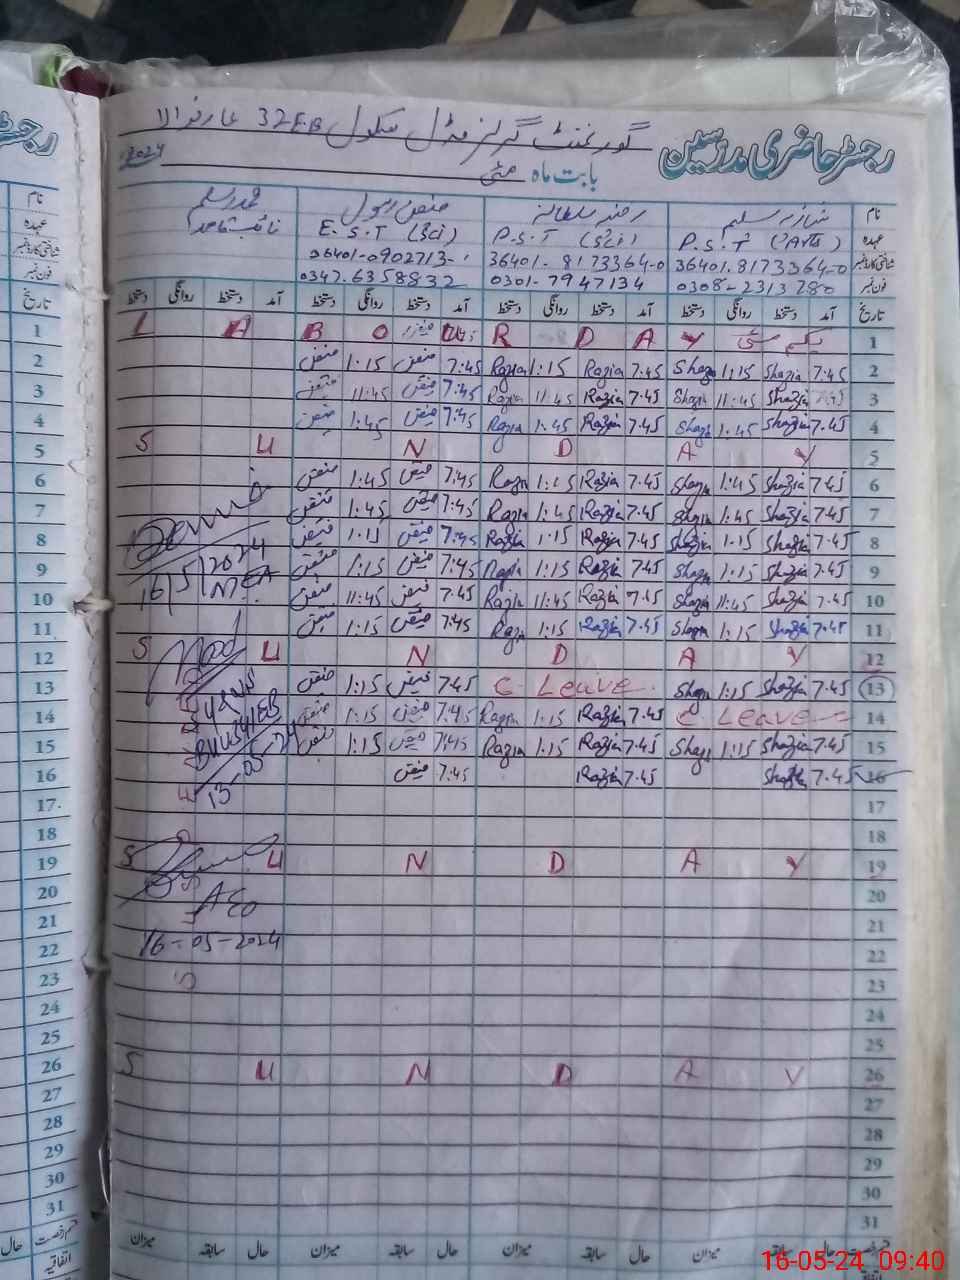 رجسٹر حاضری مدرسین گورنمنٹ گرلز مڈل سکول 32EB عارفوالا
بابت ماہ مئی 2024
نام شازیہ سلیم رضیہ سلطانہ رسول محمد سلیم
عہدہ P.S.T (Arts) P.S.T (Sci) E.S.T (Sci) نائب قاصد
شناختی کارڈ نمبر 36401-8173364-0 36401-8173364-0 36401-0902713-
فون نمبر 0308-2313780 0301-7947134 0347-6358832
تاریخ آمد دستخط روانگی دستخط آمد دستخط روانگی دستخط آمد دستخط روانگی دستخط آمد دستخط روانگی دستخط
1 یکم مئی L A B O U R D A Y
2 7:45 Shazia 1:15 Shazia 7:45 Razia 1:15 Razia 7:45 1:15
3 7:45 Shazia 11:45 Shazia 7:45 Razia 11:45 Razia 7:45 11:45
4 7:45 Shazia 1:45 Shazia 7:45 Razia 1:45 Razia 7:45 1:45
5 S U N D A Y
6 7:45 Shazia 1:45 Shazia 7:45 Razia 1:45 Razia 7:45 1:45
7 7:45 Shazia 1:45 Shazia 7:45 Razia 1:45 Razia 7:45 1:45
8 7:45 Shazia 1:15 Shazia 7:45 Razia 1:15 Razia 7:45 1:15
9 7:45 Shazia 1:15 Shazia 7:45 Razia 1:15 Razia 7:45 1:15
16/5/2024
10 7:45 Shazia 11:45 Shazia 7:45 Razia 11:45 Razia 7:45 11:45
11 7:45 Shazia 1:15 Shazia 7:45 Razia 1:15 Razia 7:45 1:15
12 S U N D A Y
13 7:45 Shazia 1:15 Shazia C. Leave 7:45 1:15
14 C. Leave 7:45 Razia 1:15 Razia 7:45 1:15
15 7:45 Shazia 1:15 Shazia 7:45 Razia 1:15 Razia 7:45 1:15
16 7:45 Shazia 7:45 Razia 7:45
17
18
19 S U N D A Y
20
AEO
21
22
16-05-2024
23
24
25
26 S U N D A Y
27
28
29
30
31
قسم رخصت حال سابقہ میزان حال سابقہ میزان حال سابقہ میزان حال سابقہ میزان
اتفاقیہ
رجسٹر
نام
عہدہ
شناختی کارڈ نمبر
فون نمبر
تاریخ
1
2
3
4
5
6
7
8
9
10
11
12
13
14
15
16
17
18
19
20
21
22
23
24
25
26
27
28
29
30
31
قسم رخصت حال
اتفاقیہ
16-05-24 09:40